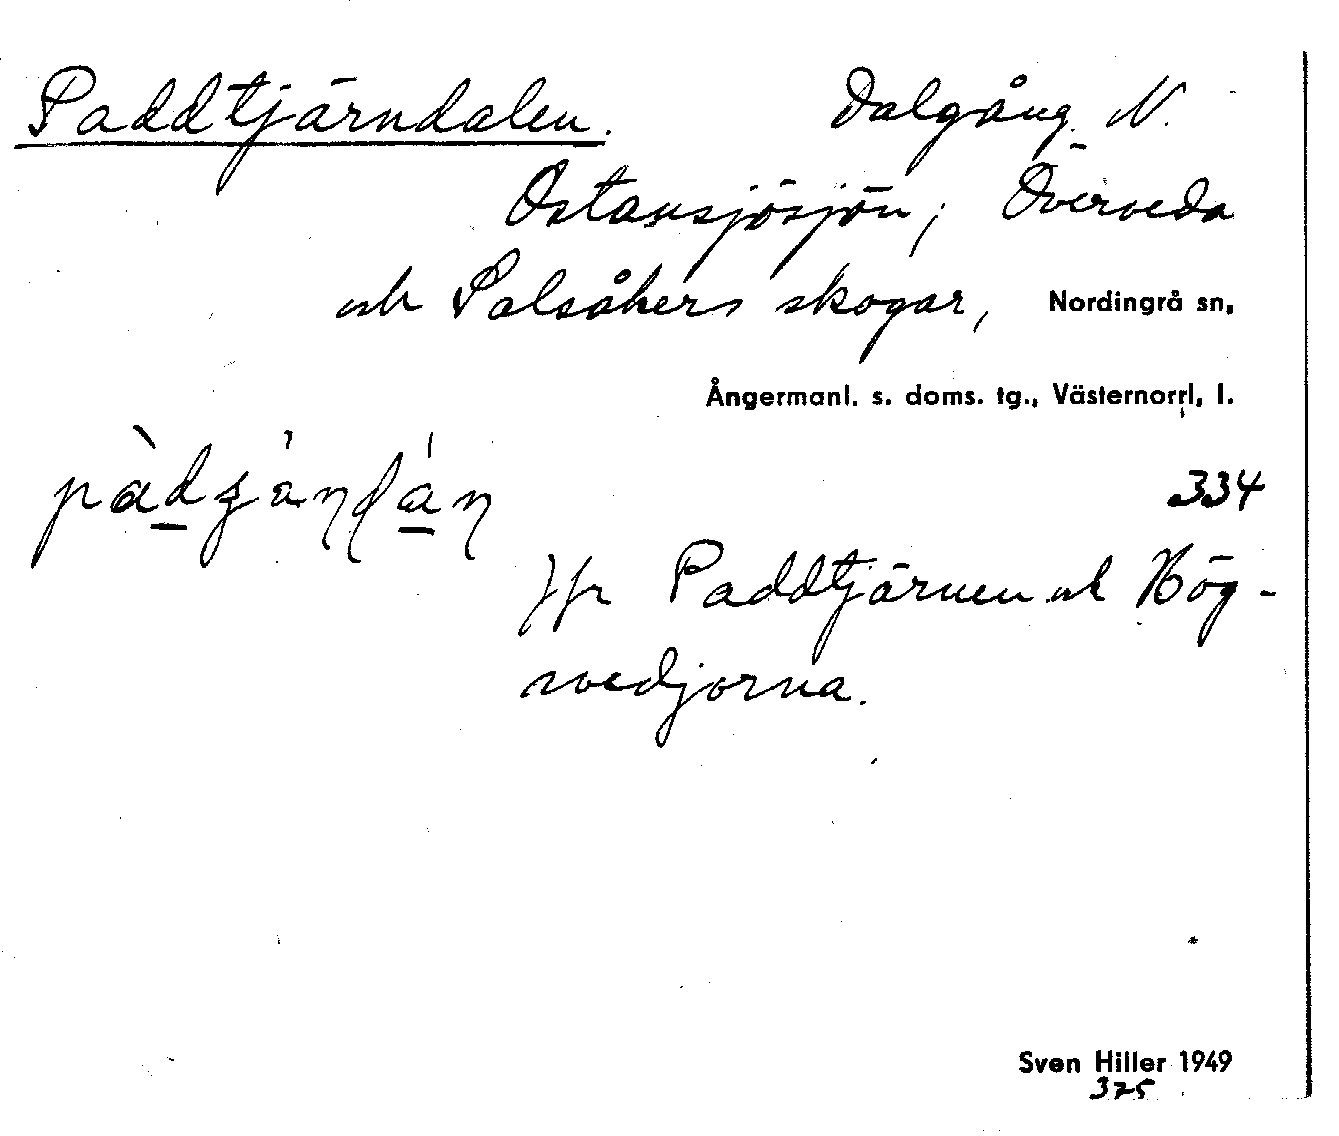 Paddtjärndalen. Dalgång N.
Östansjösjön, Överveda
och Salsåkers skogar, Nordingrå sn,
Ångermanl. s. doms. tg., Västernorrl. l.
334
Jfr Paddtjärnen och Hög-
svedjorna.
Sven Hiller 1949
375